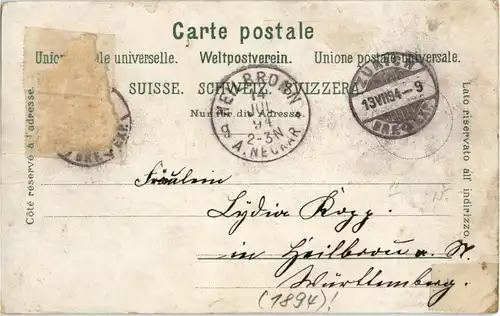 Carte postale
Union postale universelle. Weltpostverein. Unione postale universale.
SUISSE. SCHWEIZ. SVIZZERA.
Nur für die Adresse.
Côté réservé à l'adresse.
Lato riservato all' indirizzo.
HEILBRONN
14
JUL
94
2-3N
A. NECKAR
ZÜRICH
13 VII 94 - 9
BRF. EXP.
BRF. EXP.
Fräulein
Lydia Kopp.
in Heilbronn a. N.
Württemberg.
(1894)!